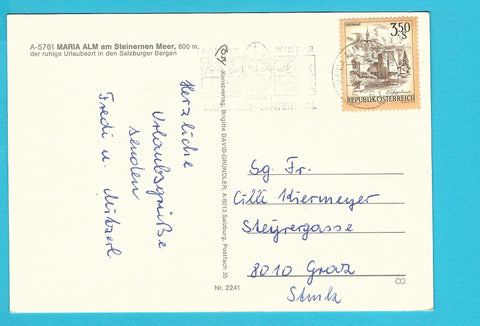 A-5761 MARIA ALM am Steinernen Meer, 800 m,
der ruhige Urlaubsort in den Salzburger Bergen
Herzliche
Urlaubsgrüße
senden
Fredi u. Mutzerl
Kunstverlag, Brigitte DAVID-GRÜNDLER, A-5013 Salzburg, Postfach 35
Nr. 2241
WINTER
SPORT
3.50
S
REPUBLIK ÖSTERREICH
Sg. Fr.
Cilli Kiermeyer
Steyrergasse
8010 Graz
Stmk